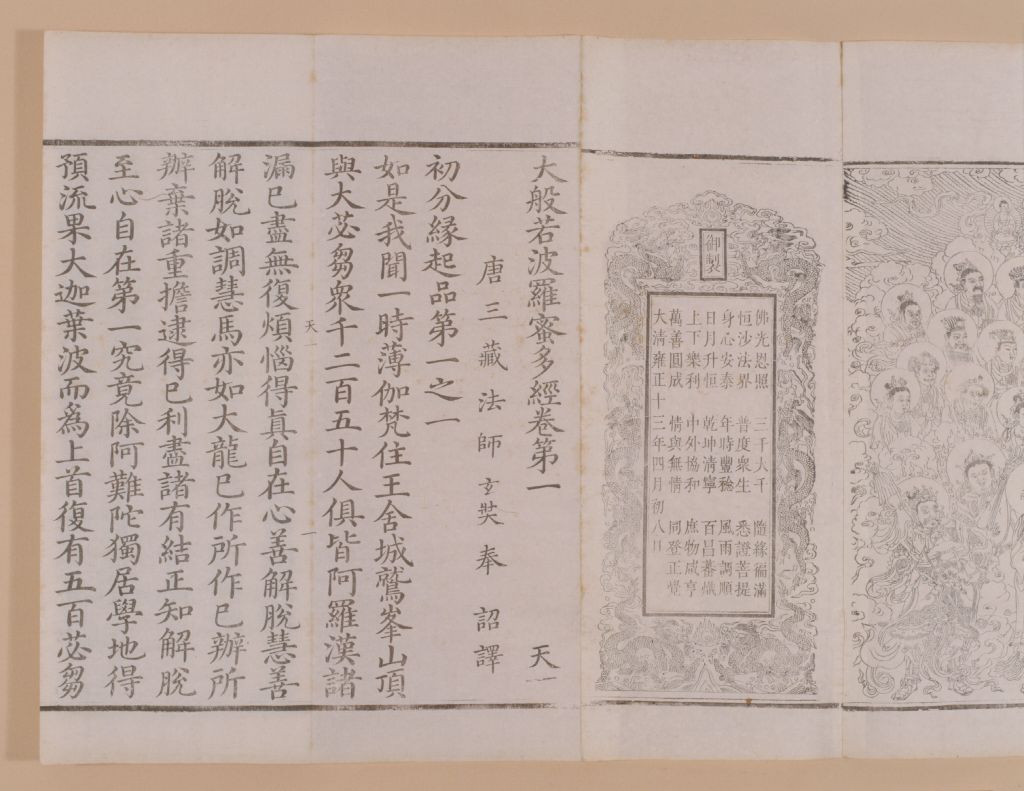 御製
佛光恩照 三千大千 隨緣徧滿
恒沙法界 普度衆生 悉證菩提
身心安泰 年時豐稔 風雨調順
日月升恒 乾坤清寧 百昌蕃熾
上下樂利 中外協和 庶物咸亨
萬善圓成 情與無情 同登正覺
大清雍正十三年四月初八日
大般若波羅蜜多經卷第一 天一
唐三藏法師玄奘奉 詔譯
初分緣起品第一之一
如是我聞一時薄伽梵住王舍城鷲峯山頂
與大苾芻衆千二百五十人俱皆阿羅漢諸
天一 一
漏已盡無復煩惱得眞自在心善解脫慧善
解脫如調慧馬亦如大龍已作所作已辦所
辦棄諸重擔逮得已利盡諸有結正知解脫
至心自在第一究竟除阿難陀獨居學地得
預流果大迦葉波而爲上首復有五百苾芻